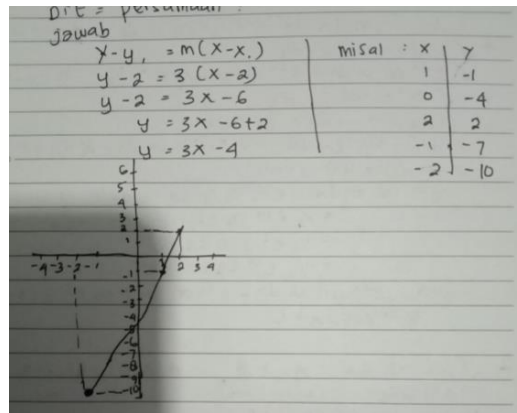 Dit = persamaan
Jawab
x-y₁ = m(x-x₁)
y-2 = 3(x-2)
y-2 = 3x-6
y = 3x-6+2
y = 3x-4
misal : x y
1 -1
0 -4
2 2
-1 -7
-2 -10
6
5
4
3
2
1
-4 -3 -2 -1 1 2 3 4
-1
-2
-3
-4
-5
-6
-7
-8
-9
-10